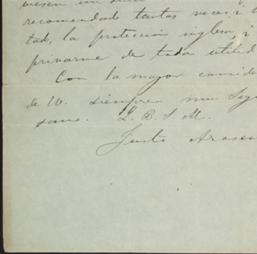 recomendado tantas veces
tad, la protección inglesa, y
privarme de toda utilid
Con la mayor consid
de W. siempre muy Seg
Q. B. S. M.
Justo